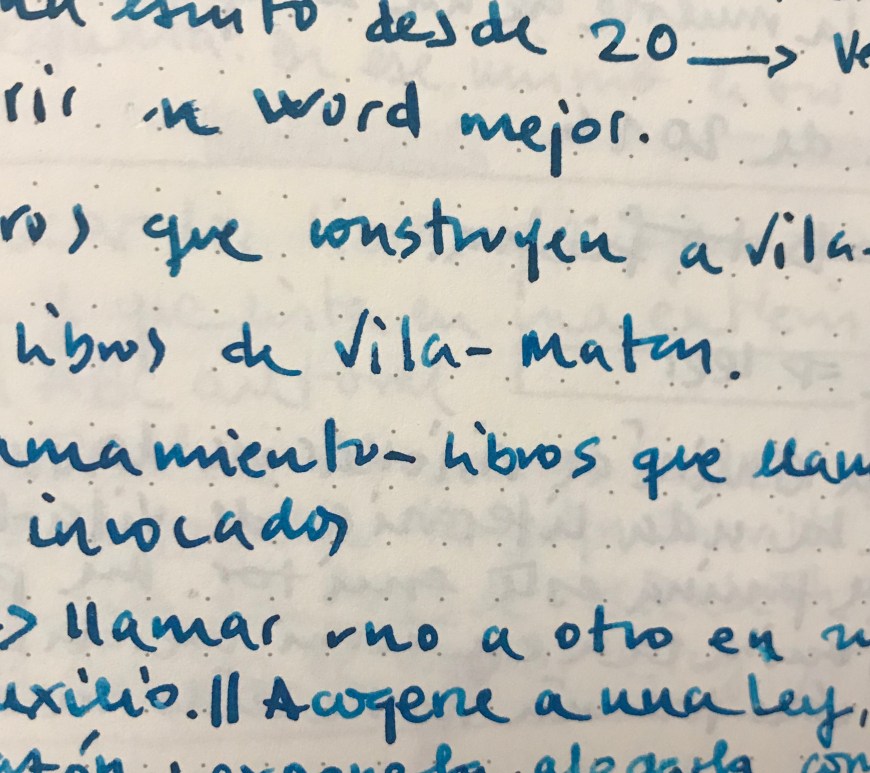 escrito desde 20 → ve
rir en Word mejor.
ros que construyen a Vila-
libros de Vila-Matas.
amamiento- libros que llam
invocados
-> llamar uno a otro en
uxilio. || Acogerse a una ley,
alegarla con